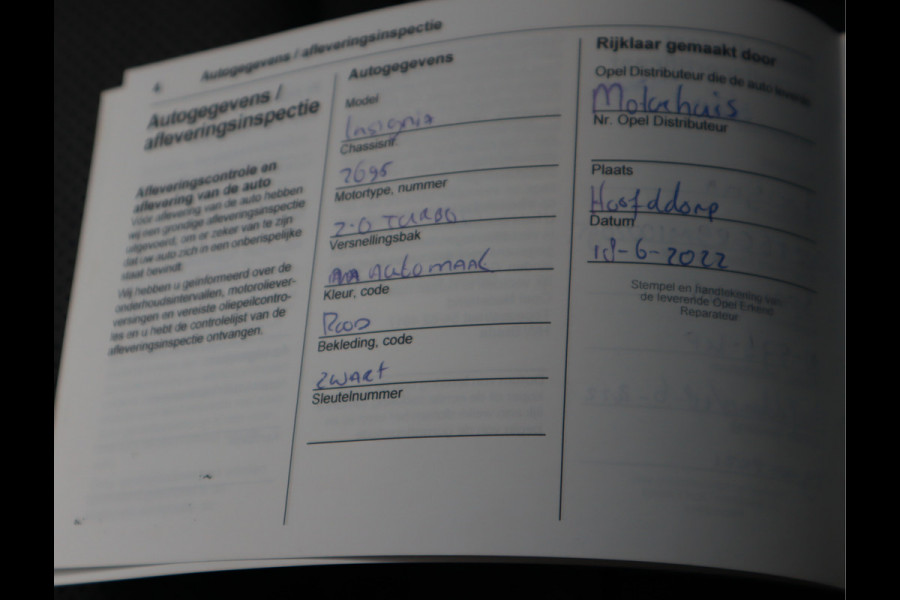 6 Autogegevens / afleveringsinspectie
Autogegevens /
afleveringsinspectie
Afleveringscontrole en
aflevering van de auto
Vóór aflevering van de auto hebben
wij een grondige afleveringsinspectie
uitgevoerd, om er zeker van te zijn
dat uw auto zich in een onberispelijke
staat bevindt.
Wij hebben u geïnformeerd over de
onderhoudsintervallen, motoroliever-
versingen en vereiste oliepeilcontro-
les en u hebt de controlelijst van de
afleveringsinspectie ontvangen.
Autogegevens
Model
Insignia
Chassisnr.
2695
Motortype, nummer
2.0 TURBO
Versnellingsbak
Automaat
Kleur, code
Rood
Bekleding, code
zwart
Sleutelnummer
Rijklaar gemaakt door
Opel Distributeur die de auto leverde
Motorhuis
Nr. Opel Distributeur
Plaats
Hoofddorp
Datum
18-6-2022
Stempel en handtekening van
de leverende Opel Erkend
Reparateur